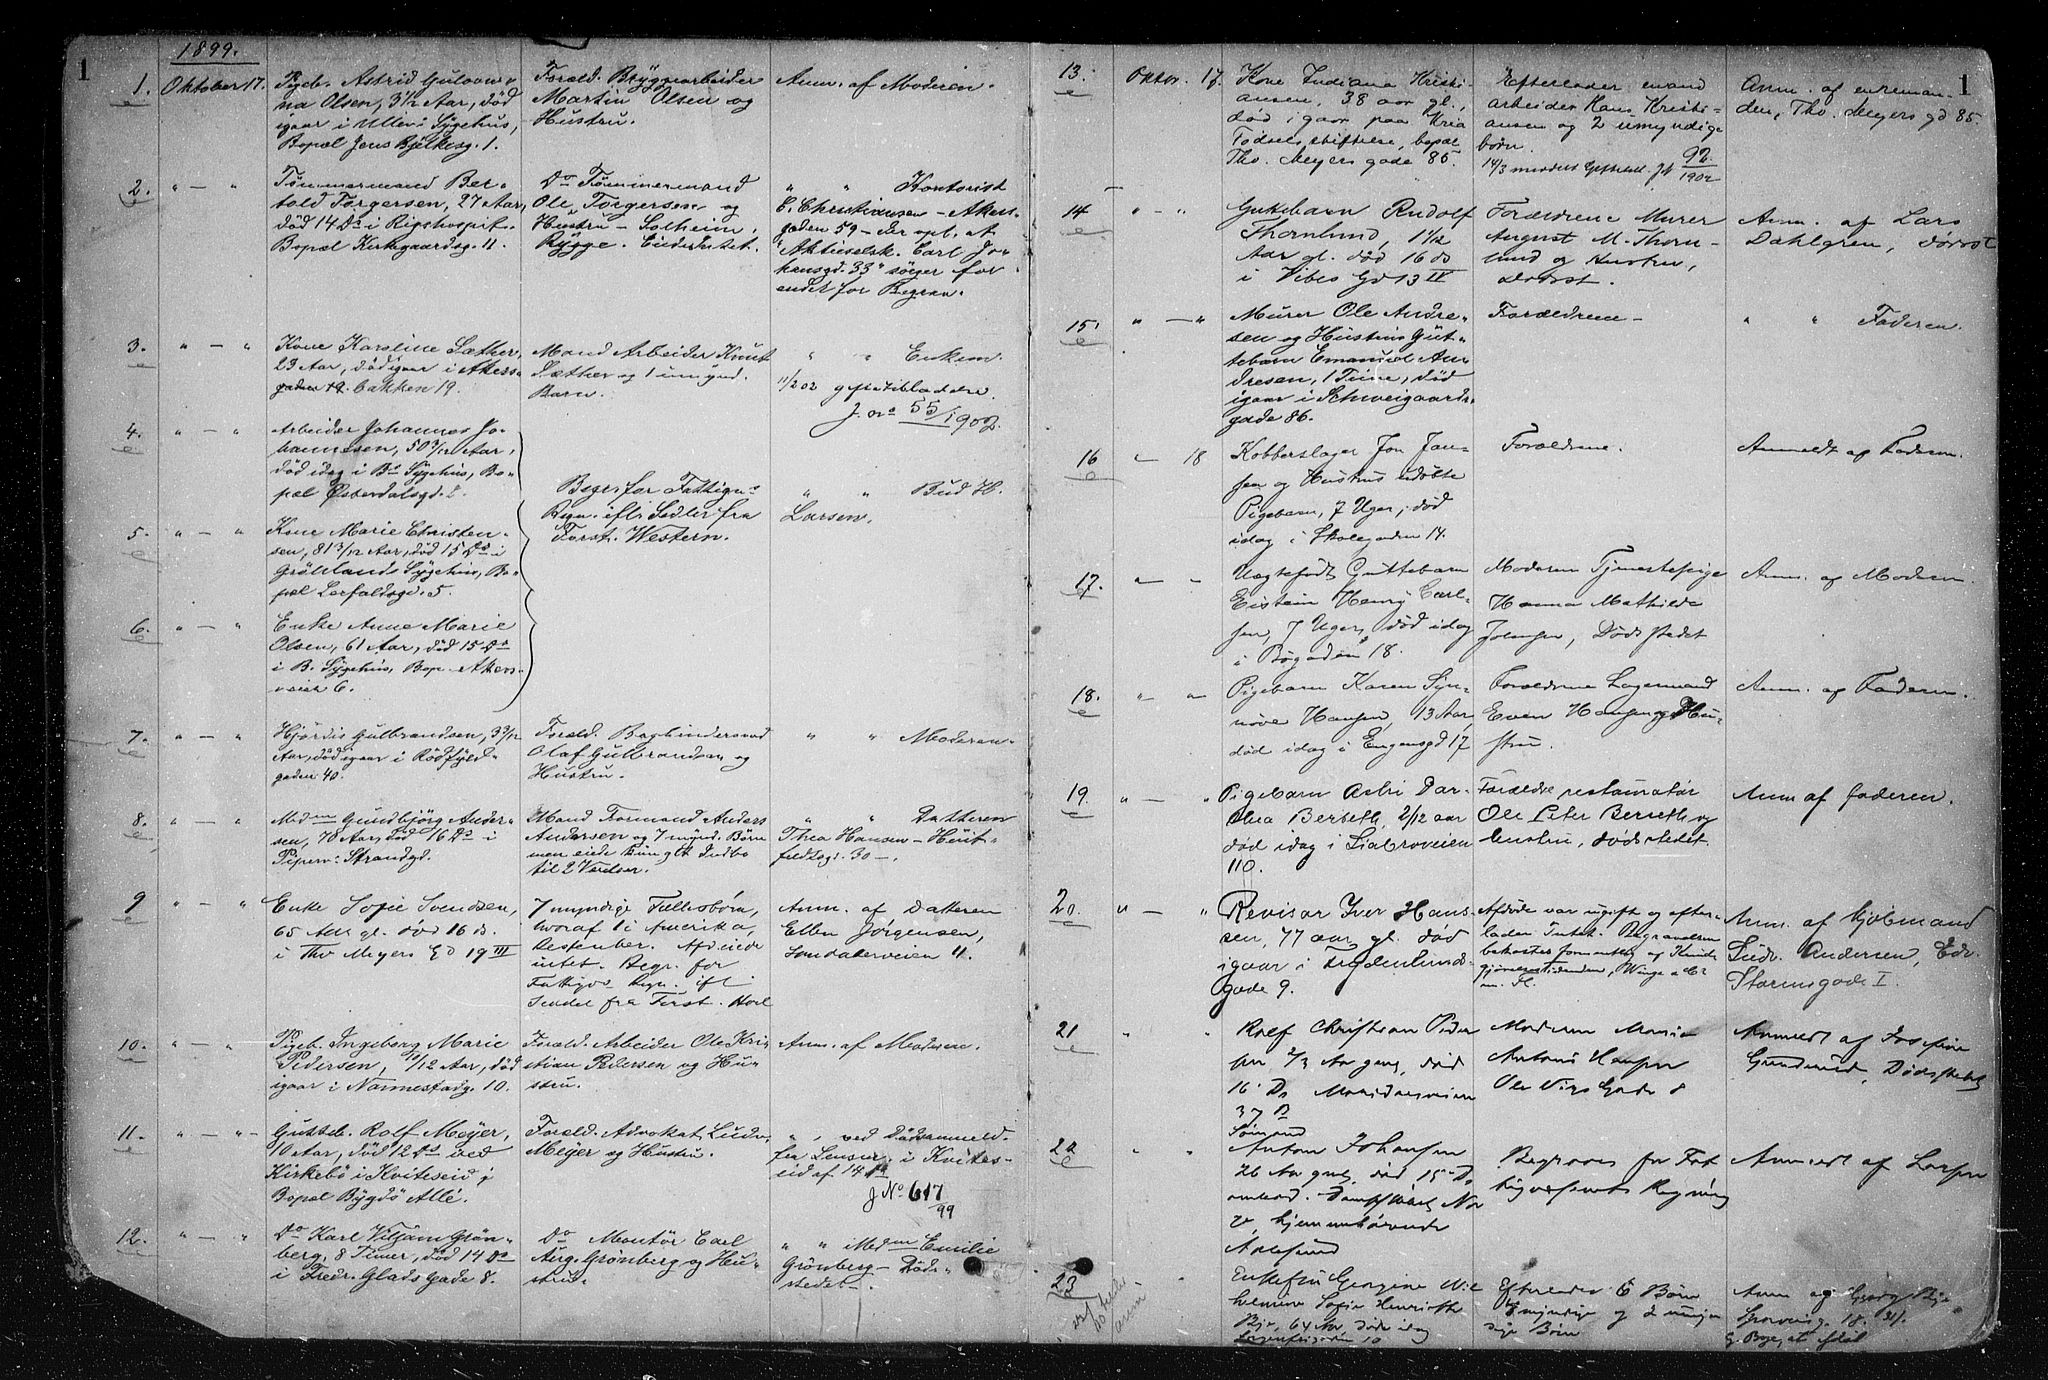 1
1899.
1. Oktober 17. Pigeb. Astrid Gulovine
Olsen, 3 1/2 Aar, död
igaar i Ullev. Sygehus,
Bopæl Jens Bjelkesg. 1.
Foræld. Bryggearbeider
Martin Olsen og
Hustru.
Anm. af Moderen.
2. " — " Tømmermand Ber-
told Torgersen, 27 Aar,
död 14 Ds i Rigshospit.
Bopæl Kirkegaardsg. 11.
Do Tømmermand
Ole Torgersen og
Hustru - Solheim,
Rygge.
" " Kontorist
C. Christiansen - Akers-
gaden 59 - der opl. at
"Aktieselsk. Carl Jo-
hansgd. 33" sörger for
endel for Begrav.
3. " — " Kone Karoline Sæther,
23 Aar, död igaar i Akers-
gaden 19. bakken 19.
Mand Arbeider Knut
Sæther og 1 umynd.
Barn.
" " Enkem.
11/2 02
J. no 55/1902.
4. " — " Arbeider Johannes Jo-
hannesen, 50 3/12 Aar,
död idag i B. Sygehus, Bo-
pæl Østerdalsgd.
5. " — " Kone Marie Christen-
sen, 81 3/12 Aar, död 15 Ds i
Grönlands Sygehus, Bo-
pæl Lerfaldsgd. 5.
6. " — " Enke Anne Marie
Olsen, 61 Aar, död 15 Ds
i B. Sygehus, Bop. Akers-
veien 6.
Begr. for Fattigv.
Regn. ifl. Sedler fra
Forst. Western.
" " Bud H.
Larsen.
7. " — " Hjördis Gulbrandsen, 3 3/12
Aar, död igaar i Rödfyld-
gaden 40.
Foræld. Bogbindersvend
Olaf Gulbrandsen og
Hustru.
" " Moderen.
8. " — " Madm Gundbjörg Ander-
sen, 70 Aar, död 16 Ds i
Piperv. Strandgd.
Mand Formand Anders
Andersen og 7 mynd. Börn
men eide kun gtk Indbo
til 2 Værelser.
" " Datteren
Thea Hansen - Huit-
feldtsgd. 30 -.
9 " — " Enke Sofie Svendsen,
65 Aar gl. död 16 ds.
i Thv Meyers Gd 19 III
7 myndige Fællesbörn,
hvoraf 1 i Amerika,
Resten her. Afd. eiede
intet. Begr. for
Fattigvs Regn. ifl
Seddel fra Forst. Hoel
Anm. af Datteren
Ellen Jørgensen,
Sandakerveien 11.
10. " — " Pigeb. Ingeborg Marie
Pedersen, 11/12 Aar, död
igaar i Nannestadg. 10.
Foræld. Arbeider Ole Kri-
stian Pedersen og Hu-
stru.
Anm. af Moderen.
11. " — " Gutteb. Rolf Meyer,
10 Aar, död 12 Ds ved
Kirkebö i Kviteseid;
Bopæl Bygdö Allé.
Foræld. Advokat Ludv.
Meyer og Hustru.
" , ved Dödsanmeld.
fra Lensm. i Kvites-
eid af 14 Ds
J No 617/99
12. " — " Do Karl Viljam Grön-
berg, 8 Timer, död 14 Ds
i Fredr. Glads Gade 8.
Do Montör Carl
Aug. Grönberg og Hu-
stru.
" " Madm Emilie
Grönberg - Döds-
stedet -
1
13. Oktbr. 17. Kone Indiana Kristi-
ansen, 38 aar gl.,
död igaar paa Kria
Födselsstiftelse, bopæl
Tho. Meyers gade 85.
Efterlader mand
arbeider Hans Kristi-
ansen og 2 umyndige
börn.
14/3 92/1902
Anm. af enkeman-
den, Tho. Meyers gd 85.
14 " — " Guttebarn Rudolf
Thornlund, 1 1/12
Aar gl. död 16 ds
i Vibes Gd 13 IV
Forældrene Murer
August M. Thorn-
lund og Hustru,
dödsst.
Anm. af Lars
Dahlgren, dödsst
15. " — " Murer Ole Andre-
sen og Hustrus Gut-
tebarn Emanuel An-
dresen, 1 Time, död
igaar i Schweigaards-
gade 86.
Forældrene -
" " Faderen.
16 " — 18 Kobberslager Jon Jan-
sen og Hustrus udöbte
Pigebarn, 7 Uger, död
idag i Skolegaden 14.
Forældrene.
Anmeldt af Faderen.
17. " — " Uægtefödt Guttebarn
Eistein Henry Carl-
sen, 7 Uger, död idag
i Bögaden 18.
Moderen Tjenestepige
Hanna Mathilde
Johansen, Dödsstedet
Anm. af Moderen.
18. " — " Pigebarn Karen Syn-
növe Hansen, 13 Aar,
död idag i Eugensgd 17
Forældrene Lagermand
Even Hansen og Hu-
stru.
Anm. af Faderen.
19. " — " Pigebarn Astri Dor-
thea Berseth, 2/12 aar
död idag i Liabroveien
110.
Forældre restauratör
Ole Peter Berseth og
hustru, dödsstedet.
Anm af faderen.
20. " — " Revisor Iver Hans-
sen, 77 aar gl. död
igaar i Frydenlunds-
gade 9.
Afdöde var ugift og efter-
lader Intet. Begravelsen
bekostes formentlig af Kund-
gjörelsestidenden, Winge & Co
m. Fl.
Anm. af Kjöbmand
Ludv. Andersen, Edv.
Stormsgade I.
21 " " Rolf Christian Peder
sen 2/3 Aar gml, död
16 Ds Maridalsveien
37 D
Moderen Maria
Antonie Hansen
Ole Vigs Gade 8
Anmeldt af Josefine
Gundersen, Dødsstedet
22 " " Sömand
Anton Johansen
26 Aar gml, död 15 Ds
ombord. Dampskibet No
ve, hjemmehörende
Aalesund
Begraves for Fat
tigvæsenets Regning
Anmeldt af Larsen
23 " Enkefru Georgine Wil
helmine Sofie Henriette
Bje, 64 Aar döde idag
10
Efterlader 6 Börn
4 myndige og 2 umyn
dige Börn
Anm af Georg Bje
18. 31/.